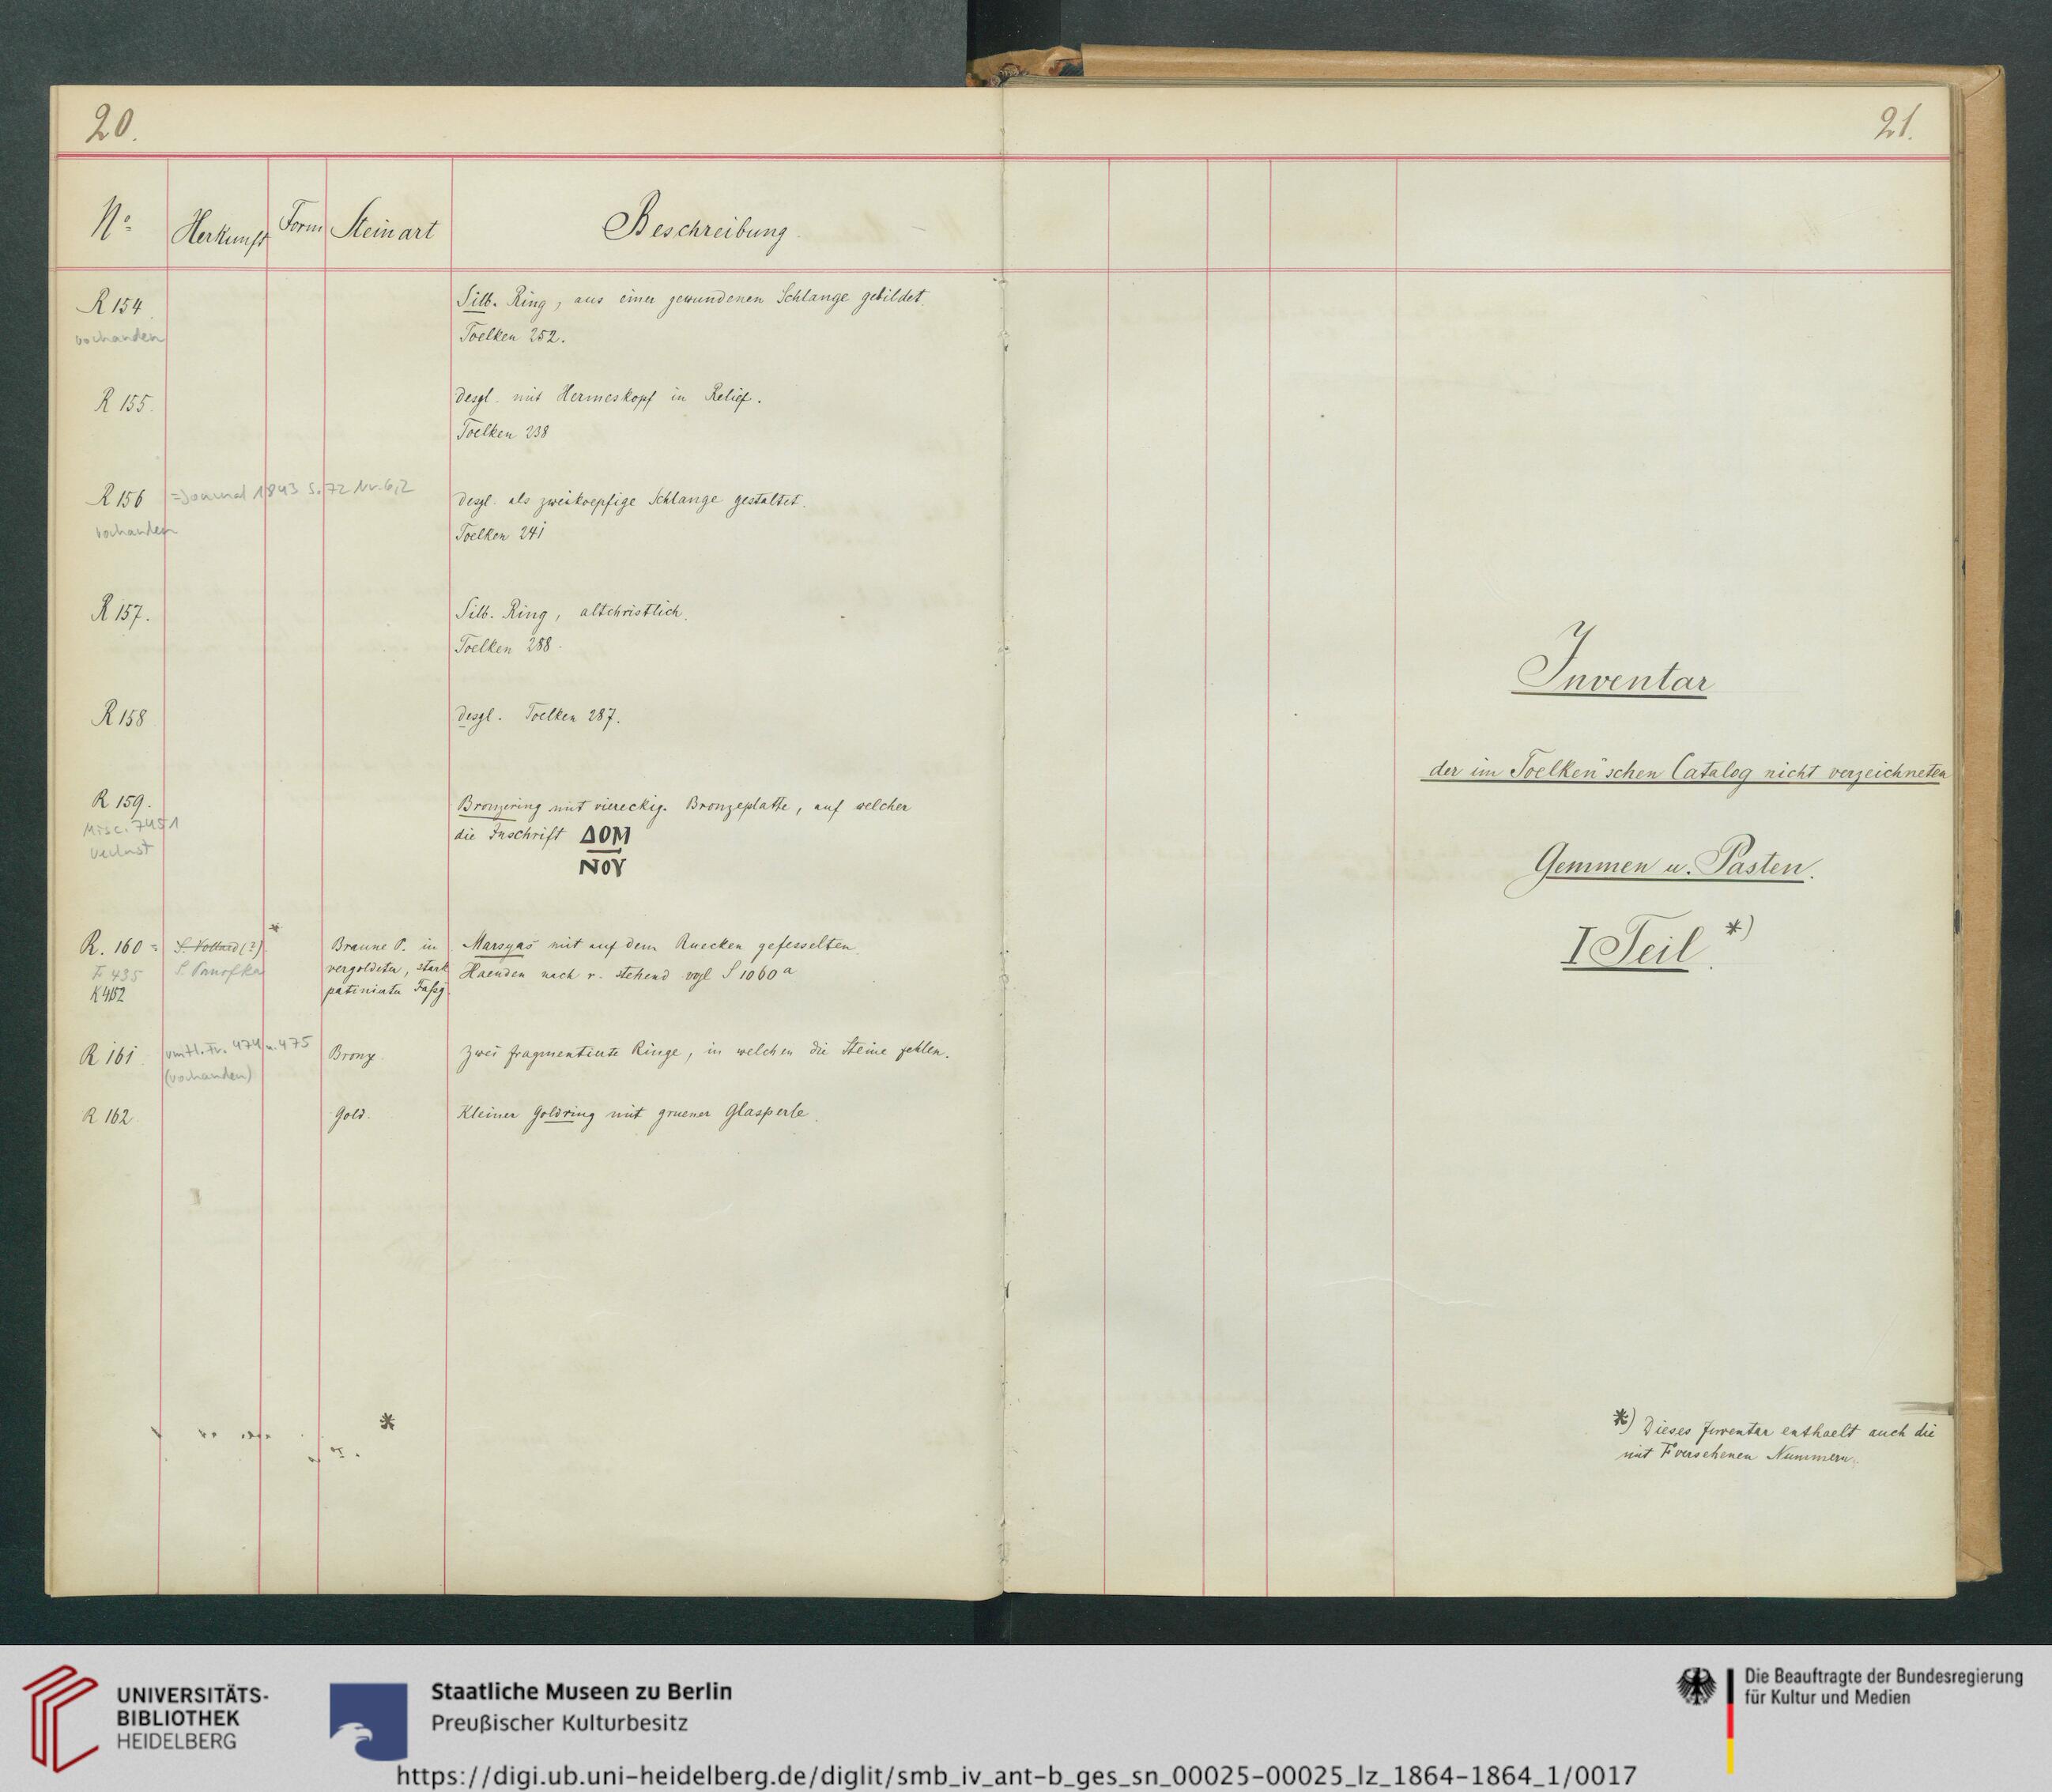 20.
No Herkunft Form Steinart Beschreibung
R 154 Silb. Ring, aus einer gewundenen Schlange gebildet.
vorhanden Toelken 252.
R 155. desgl. mit Hermeskopf in Relief.
Toelken 238
R 156 = Journal 1843 S. 72 Nr. 6,2 desgl. als zweikoepfige Schlange gestaltet.
vorhanden Toelken 241
R 157. Silb. Ring, altchristlich.
Toelken 288.
R 158 desgl. Toelken 287.
R 159. Bronzering mit viereckig. Bronzeplatte, auf welcher
Misc. 7451 die Inschrift ΔOM
Verlust NOV
R. 160 = S. Vollard (?) * Braune P. in Marsyas mit auf dem Ruecken gefesselten
F 435 S. Panofka vergoldeter, stark Haenden nach r. stehend vgl S 1060a
K 4152 patinierter Fassg.
R 161 vmtl. Fr. 474 u. 475 Bronze. Zwei fragmentierte Ringe, in welchen die Steine fehlen.
(vorhanden)
R 162 Gold. Kleiner Goldring mit gruener Glasperle.
*
21.
Inventar
der im Toelken'schen Catalog nicht verzeichneten
Gemmen u. Pasten.
I Teil. *)
*) Dieses Inventar enthaelt auch die
mit F versehenen Nummern.
UNIVERSITÄTS-
BIBLIOTHEK
HEIDELBERG
Staatliche Museen zu Berlin
Preußischer Kulturbesitz
Die Beauftragte der Bundesregierung
für Kultur und Medien
https://digi.ub.uni-heidelberg.de/diglit/smb_iv_ant-b_ges_sn_00025-00025_lz_1864-1864_1/0017